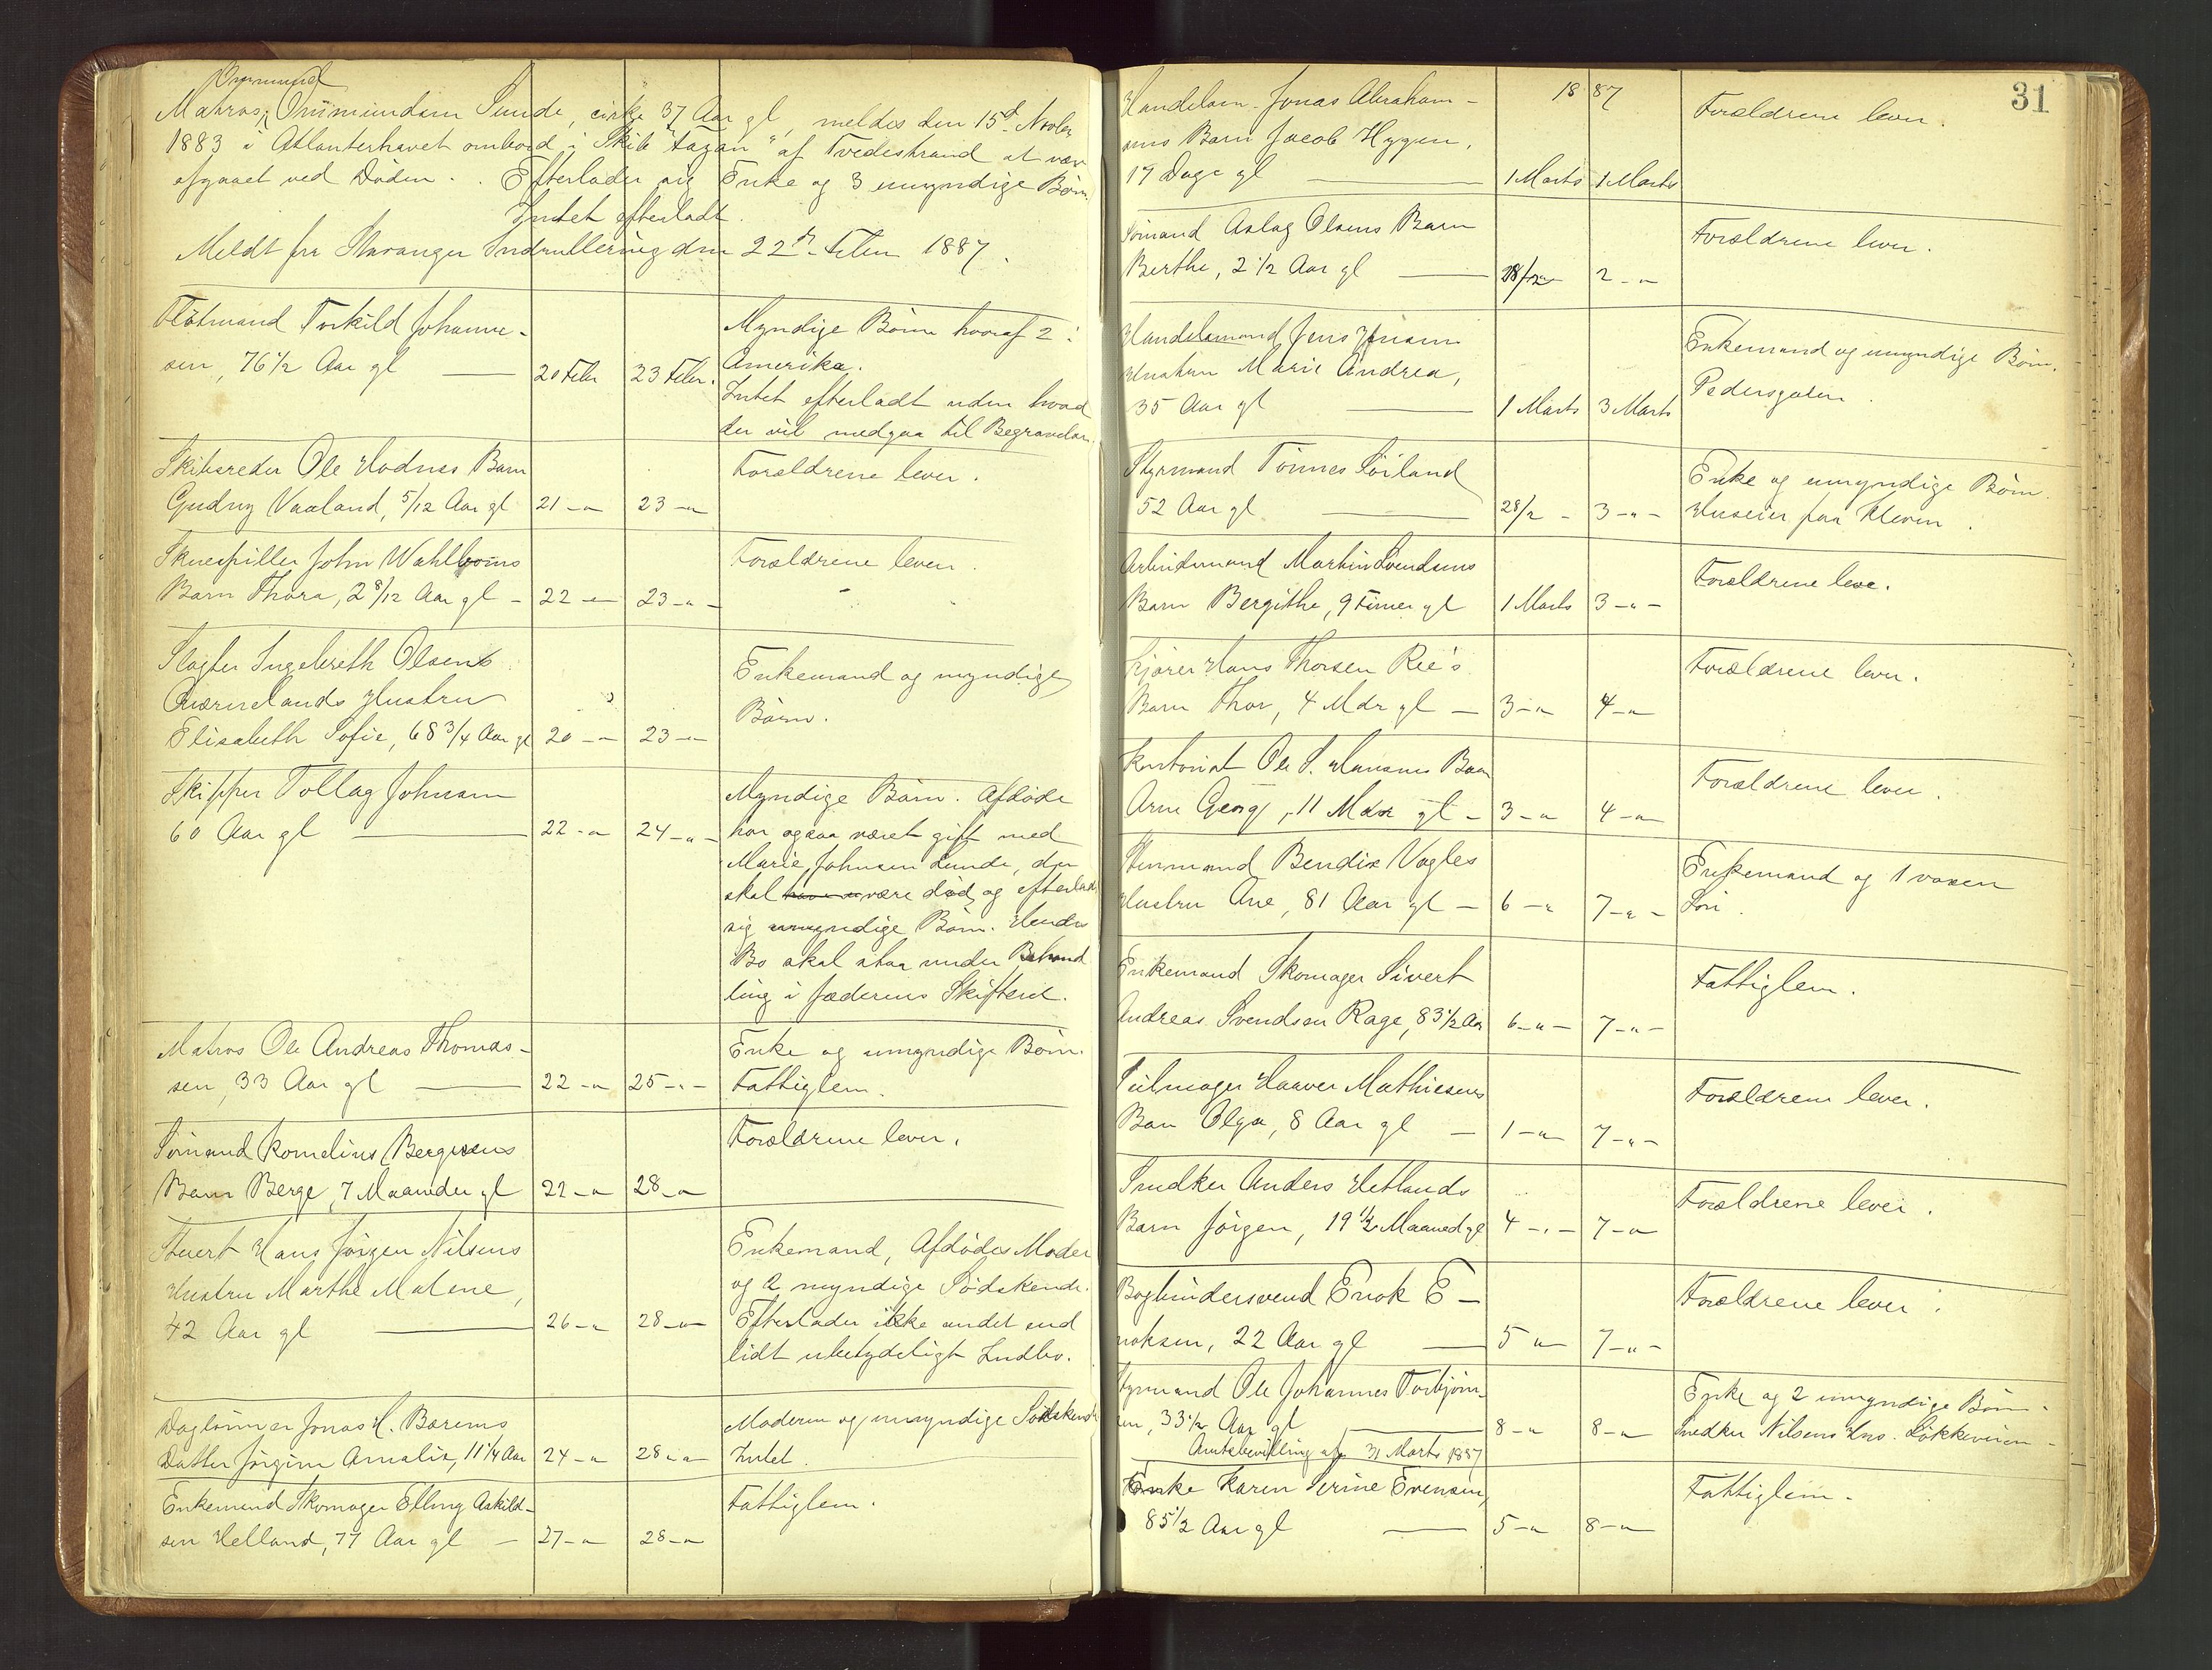 Ommund
Matros, Ommundsen Sunde, cirka 37 Aar gl, meldes den 15d Novbr
1883 i Atlanterhavet ombord i Skib "Fagan" af Tvedestrand at være
afgaaet ved Døden. Efterlader sig Enke og 3 umyndige Børn.
Intet efterladt.
Meldt fra Stavanger Indrullering den 22d Febr 1887.
Flötmand Torkild Johanne-
sen, 76 1/2 Aar gl — 20 Febr 23 Febr.
Myndige Börn hvoraf 2 i
Amerika.
Intet efterladt uden hvad
der vil medgaa til Begravelsen.
Skibsreder Ole Hodnes Barn
Gudny Vaaland, 5/12 Aar gl 21 -"- 23 -"-
Forældrene lever.
Skuespiller John Wahlboms
Barn Thora, 2 8/12 Aar gl - 22 -"- 23 -"-
Forældrene lever.
Slagter Ingebreth Olsens
Qværnelands Hustru
Elisabeth Sofie, 68 3/4 Aar gl 20 -"- 23 -"-
Enkemand og myndige
Börn.
Skipper Tollag Johnsen
60 Aar gl — 22 -"- 24 -"-
Myndige Börn. Afdöde
har ogsaa været gift med
Marie Johnsen Lunde, der
skal være död og efterlade
sig umyndige Börn. Hendes
Bo skal staa under Behand
ling i Jæderens Skifteret.
Matros Ole Andreas Thomas-
sen, 33 Aar gl — 22 -"- 25 -"-
Enke og umyndige Börn.
Fattiglem.
Sömand Kornelius Bergesens
Barn Berge, 7 Maaneder gl 22 -"- 28 -"-
Forældrene lever.
Stuert Hans Jörgen Nilsens
Hustru Marthe Malene,
42 Aar gl — 26 -"- 28 -"-
Enkemand, Afdödes Moder
og 2 myndige Södskende.
Efterlader ikke andet end
lidt ubetydeligt Indbo.
Daglönner Jonas H. Barems
Datter Jörgine Amalie, 11 1/4 Aar 24 -"- 28 -"-
Moderen og umyndige Södskende
Intet.
Enkemand Skomager Elling Askild-
sen Helland, 77 Aar gl — 27 -"- 28 -"-
Fattiglem.
31
1887
Handelsm. Jonas Abraham-
sens Barn Jacob Hygen,
19 Dage gl — 1 Marts 1 Marts
Forældrene lever.
Sömand Aslag Olsens Barn
Berthe, 2 1/2 Aar gl — 28/2 2 -"-
Forældrene lever.
Handelsmand Jens Jensens
Hustru Marie Andrea,
35 Aar gl — 1 Marts 3 Marts
Enkemand og umyndige Börn.
Pedersgaden.
Styrmand Tönnes Söiland
52 Aar gl — 28/2 - 3 -"-
Enke og umyndige Börn.
Huseier paa Kleven.
Arbeidsmand Martin Svendsens
Barn Bergithe, 9 Timer gl 1 Marts 3 -"-
Forældrene leve.
Kjörer Hans Thorsen Ree's
Barn Thor, 4 Mdr gl — 3 -"- 4 -"-
Forældrene lever.
Kontorist Ole S. Hansens Barn
Arne Georg, 11 Mdr gl - 3 -"- 4 -"-
Forældrene lever.
Stenmand Bendix Vagles
Hustru Ane, 81 Aar gl — 6 -"- 7 -"-
Enkemand og 1 voxen
Sön.
Enkemand Skomager Sivert
Andreas Svendsen Rage, 83 1/2 Aar 6 -"- 7 -"-
Fattiglem.
Seilmager Haaver Mathiesens
Barn Olga, 8 Aar gl — 1 -"- 7 -"-
Forældrene lever.
Snedker Anders Hetlands
Barn Jörgen, 19 1/2 Maaned gl 4 -"- 7 -"-
Forældrene lever.
Bogbindersvend Enok E-
noksen, 22 Aar gl — 5 -"- 7 -"-
Forældrene lever.
Styrmand Ole Johannes Torbjörn-
sen, 33 1/2 Aar gl 8 -"- 8 -"-
Amtsbevilling af 31 Marts 1887
Enke og 2 umyndige Börn.
Snedker Nilsens Hus. Lökkeveien.
Enke Karen Serine Evensen,
85 1/2 Aar gl — 5 -"- 8 -"-
Fattiglem.